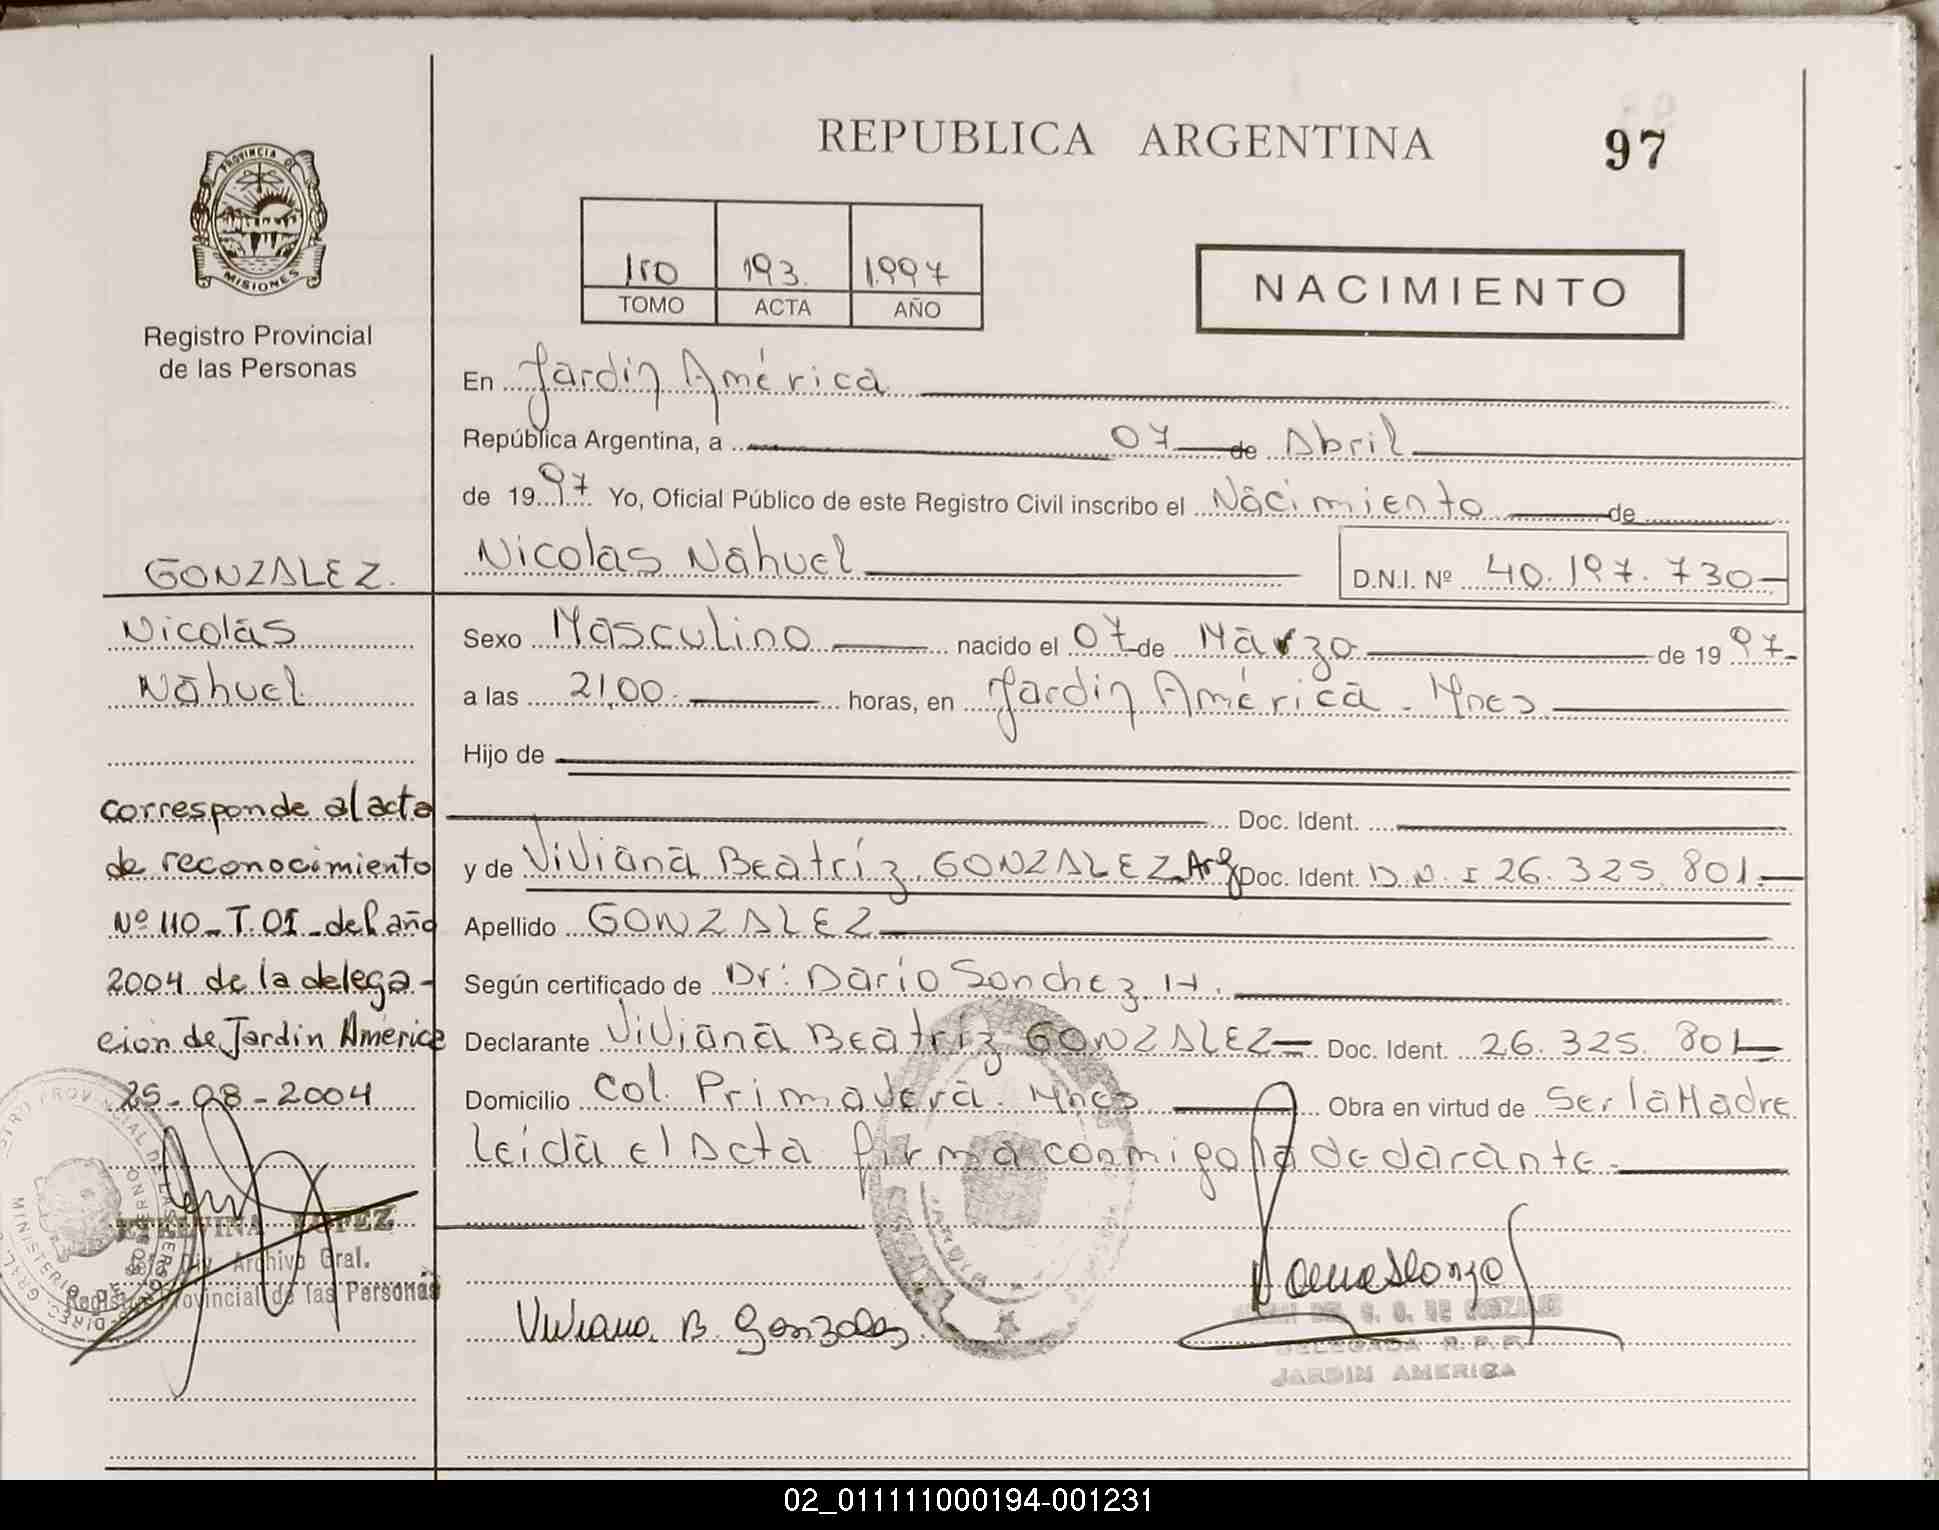 REPUBLICA ARGENTINA
97
PROVINCIA DE
MISIONES
Registro Provincial
de las Personas
1ro 193. 1.997
TOMO ACTA AÑO
NACIMIENTO
En Jardín América
República Argentina, a 07 de Abril
de 1997 Yo, Oficial Público de este Registro Civil inscribo el Nacimiento de
Nicolas Nahuel D.N.I. Nº 40.197.730
Sexo Masculino nacido el 07 de Marzo de 1997
a las 21,00 horas, en Jardín América. Mnes
Hijo de
Doc. Ident.
y de Viviana Beatríz GONZALEZ Arg Doc. Ident. D.N.I 26.325.801.
Apellido GONZALEZ
Según certificado de Dr: Dario Sanchez. H.
Declarante Viviana Beatríz GONZALEZ Doc. Ident. 26.325.801
Domicilio Col. Primavera. Mnes Obra en virtud de Ser la Madre
Leida el Acta firma conmigo la declarante.
Viviana B. Gonzalez
DELEGADA R.P.P.
JARDIN AMERICA
GONZALEZ.
Nicolás
Nahuel
corresponde al acta
de reconocimiento
Nº 110 - T. 01 - del año
2004 de la delega-
cion de Jardín América
25-08-2004
LOPEZ
Jefa Div. Archivo Gral.
Registro Provincial de las Personas
02_011111000194-001231